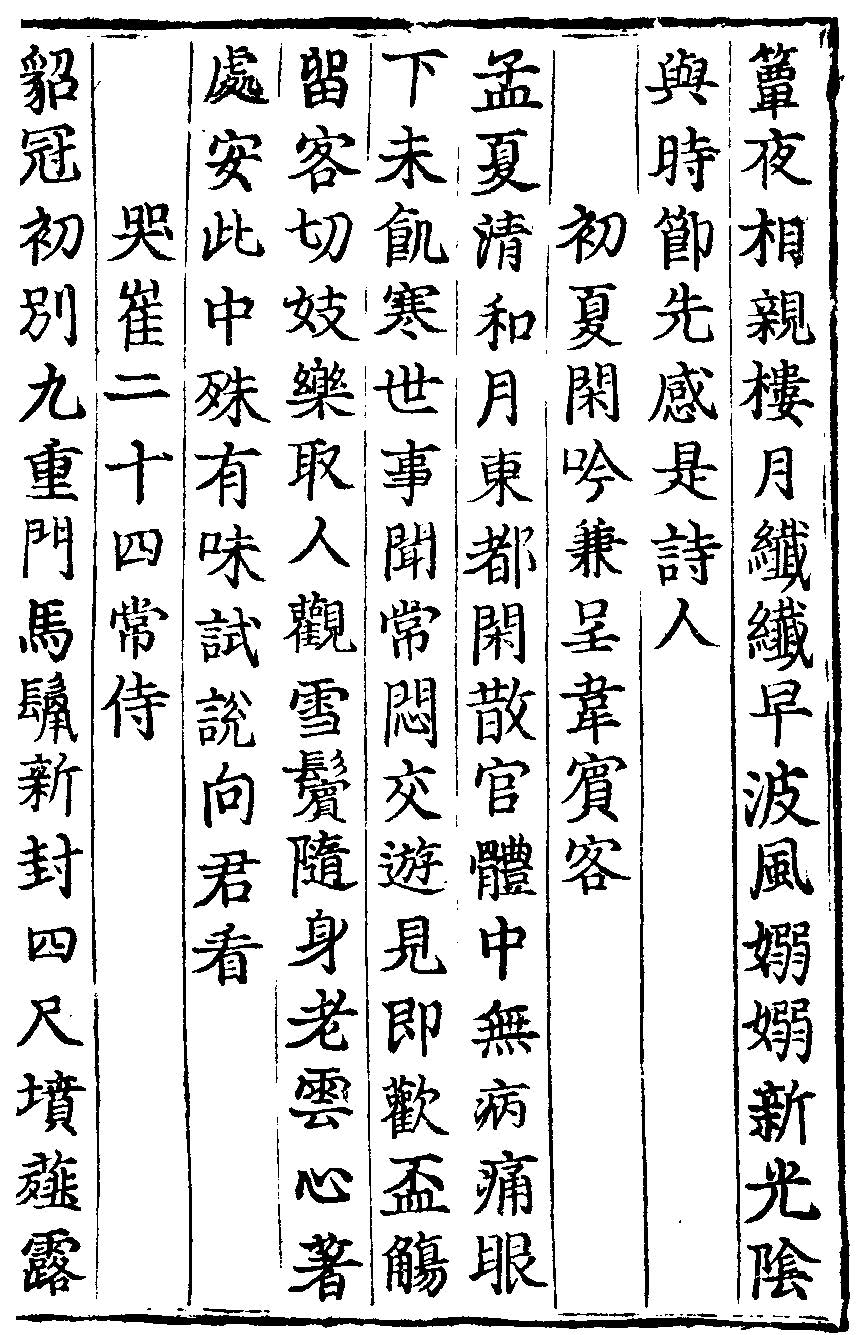 簟夜相親樓月纖纖早波風嫋嫋新光陰
與時節先感是詩人
初夏閑吟兼呈韋賓客
孟夏清和月東都閑散官體中無病痛眼
下未飢寒世事聞常悶交遊見即歡盃觴
留客切妓樂取人觀雪鬢隨身老雲心著
處安此中殊有味試說向君看
哭崔二十四常侍
貂冠初別九重門馬鬣新封四尺墳薤露